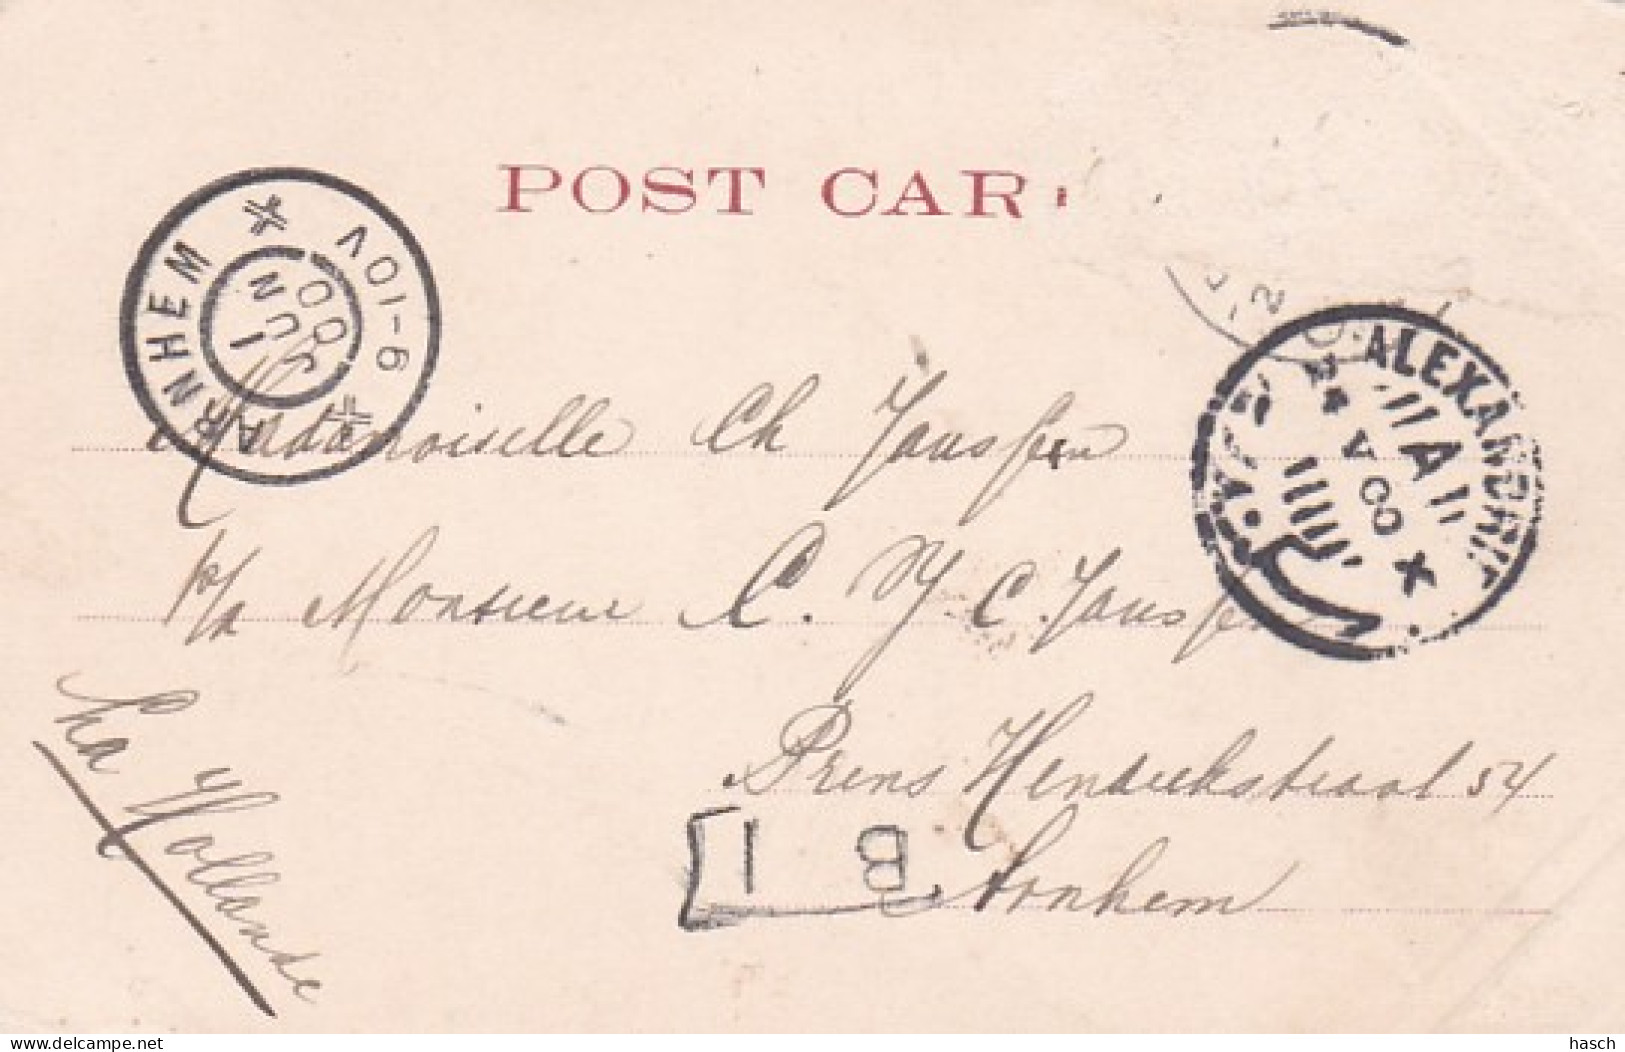 POST CAR
ARNHEM
9-10V
1 JUN
00
ALEXANDRIE
A
V 00
Mademoiselle Ch Janssen
p/a Monsieur C. J C. Janssen
Prens Hendrikstraat 54
Arnhem
La Hollande
I B
Website for collectors : www.delcampe.net
hasch